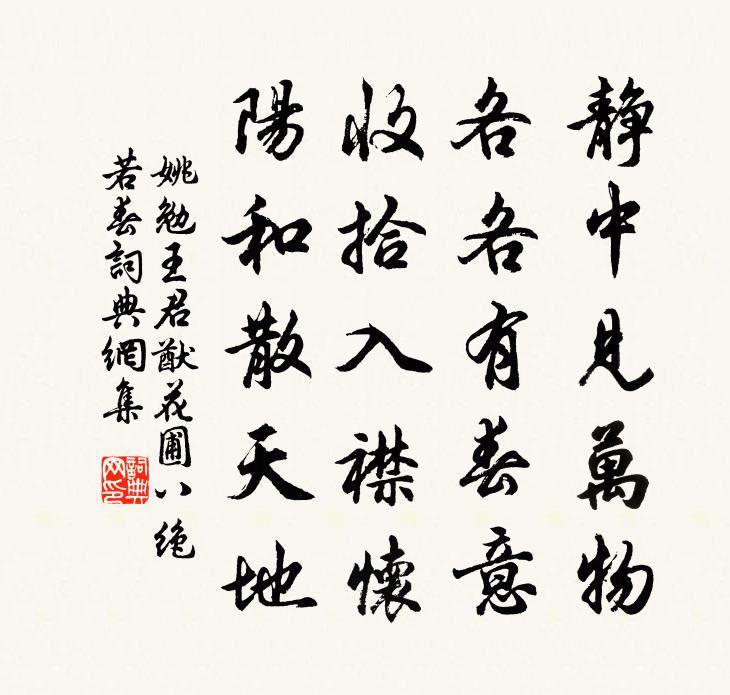 静中見萬物
各各有春意
收拾入襟懷
陽和散天地
姚勉王君猷花圃八絶
若春詞典網集
詞典网印